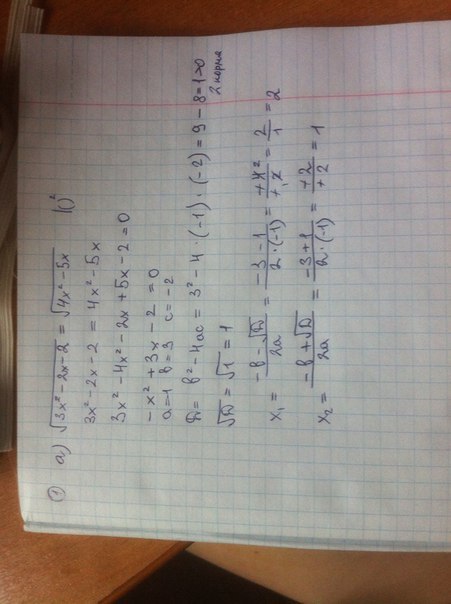 ① a) √(3x² - 2x - 2) = √(4x² - 5x) |()²
3x² - 2x - 2 = 4x² - 5x
3x² - 4x² - 2x + 5x - 2 = 0
-x² + 3x - 2 = 0
a = -1 b = 3 c = -2
D = b² - 4ac = 3² - 4 · (-1) · (-2) = 9 - 8 = 1 > 0
2 корня
√D = √1 = 1
x₁ = (-b - √D)/(2a) = (-3 - 1)/(2 · (-1)) = (+4 2)/(+1 2) = 2/1 = 2
x₂ = (-b + √D)/(2a) = (-3 + 1)/(2 · (-1)) = (+2)/(+2) = 1